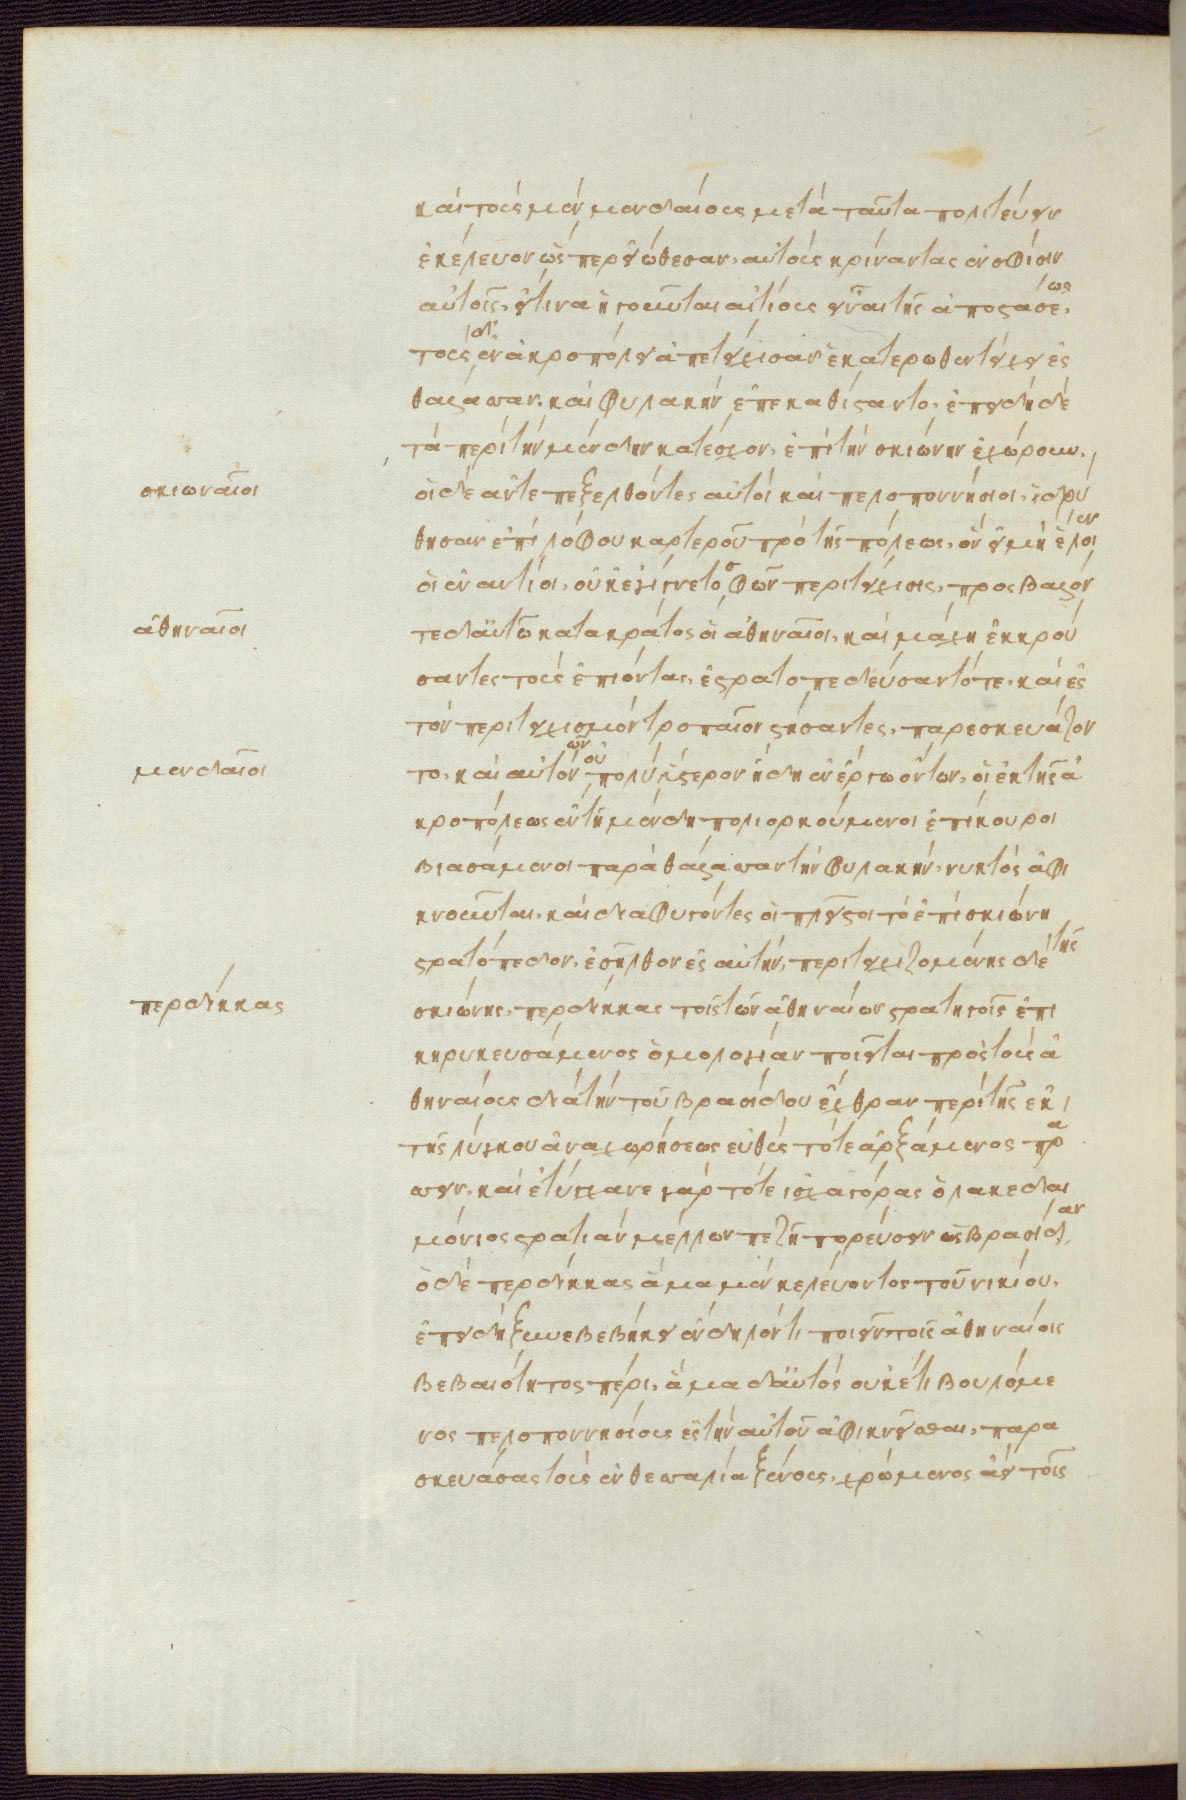 καὶ τοὺς μὲν μενδαίους μετὰ ταῦτα πολιτεύειν
ἐκέλευον ὥσπερ εἰώθεσαν· αὐτοὺς κρίναντας ἐν σφίσιν
αὐτοῖς, εἴ τινα ἡγοῦνται αἰτίους εἶναι τῆς ἀποστάσεως·
τοὺς δ' ἐν ἀκροπόλει ἀπετείχισαν ἑκατέρωθεν τείχει ἐς
θάλασσαν· καὶ φυλακὴν ἐπεκαθίσαντο· ἐπειδὴ δὲ
τὰ περὶ τὴν μένδην κατέσχον, ἐπὶ τὴν σκιώνην ἐχώρουν.
σκιωναῖοι
οἱ δὲ ἀντεπεξελθόντες αὐτοὶ καὶ πελοποννήσιοι, ἱδρύ
θησαν ἐπὶ λόφου καρτεροῦ πρὸ τῆς πόλεως, ὃν εἰ μὴ ἕλοιεν
οἱ ἐναντίοι, οὐκ ἐγίγνετο σφῶν περιτείχισις. προσβαλόν
ἀθηναῖοι
τες δ' αὐτῶ κατὰ κράτος οἱ ἀθηναῖοι, καὶ μάχη ἐκκρού
σαντες τοὺς ἐπιόντας, ἐστρατοπεδεύσαντό τε, καὶ ἐς
τὸν περιτειχισμὸν τροπαῖον στήσαντες, παρεσκευάζον
μενδαῖοι
το, καὶ αὐτῶν οὐ πολὺ ὕστερον ἤδη ἐν ἔργω ὄντων, οἱ ἐκ τῆς ἀ
κροπόλεως ἐν τῆ μένδη πολιορκούμενοι ἐπίκουροι
βιασάμενοι παρὰ θάλασσαν τὴν φυλακήν, νυκτὸς ἀφι
κνοῦνται, καὶ διαφυγόντες οἱ πλεῖστοι τὸ ἐπὶ σκιώνη
στρατόπεδον, ἐσῆλθον ἐς αὐτήν, περιτειχιζομένης δὲ τῆς
περδίκκας
σκιώνης, περδίκκας τοῖς τῶν ἀθηναίων στρατηγοῖς ἐπι
κηρυκευσάμενος ὁμολογίαν ποιεῖται πρὸς τοὺς ἀ
θηναίους διὰ τὴν τοῦ βρασίδου ἔχθραν περὶ τῆς ἐκ
τῆς λύγκου ἀναχωρήσεως εὐθὺς τότε ἀρξάμενος πρά
σσειν, καὶ ἐτύγχανε γὰρ τότε ἰσχαγόρας ὁ λακεδαι
μόνιος στρατιὰν μέλλων πεζῆ πορεύσειν ὡς βρασίδαν
ὁ δὲ περδίκκας ἅμα μὲν κελεύοντος τοῦ νικίου,
ἐπειδὴ ξυνεβεβήκει ἔνδηλόν τι ποιεῖν τοῖς ἀθηναίοις
βεβαιότητος πέρι, ἅμα δ' αὐτὸς οὐκέτι βουλόμε
νος πελοποννησίους ἐς τὴν αὐτοῦ ἀφικνεῖσθαι, παρα
σκευάσας τοὺς ἐν θεσσαλία ξένους, χρώμενος ἀεὶ τοῖς